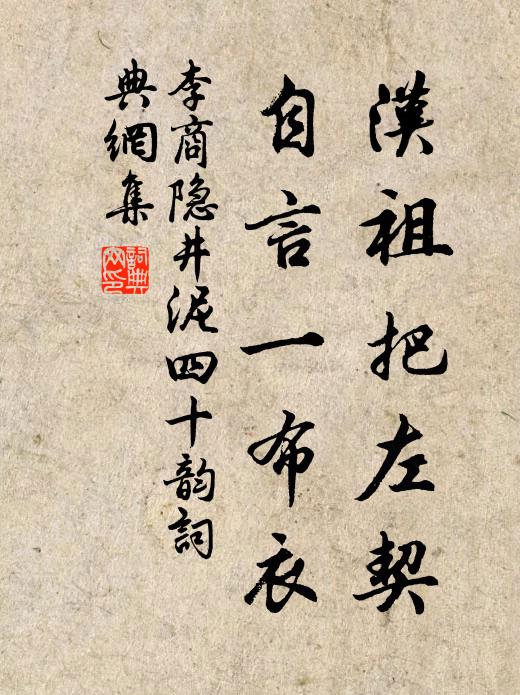 漢祖把左契
自言一布衣
李商隐井泥四十韵詞
典網集
詞典網印